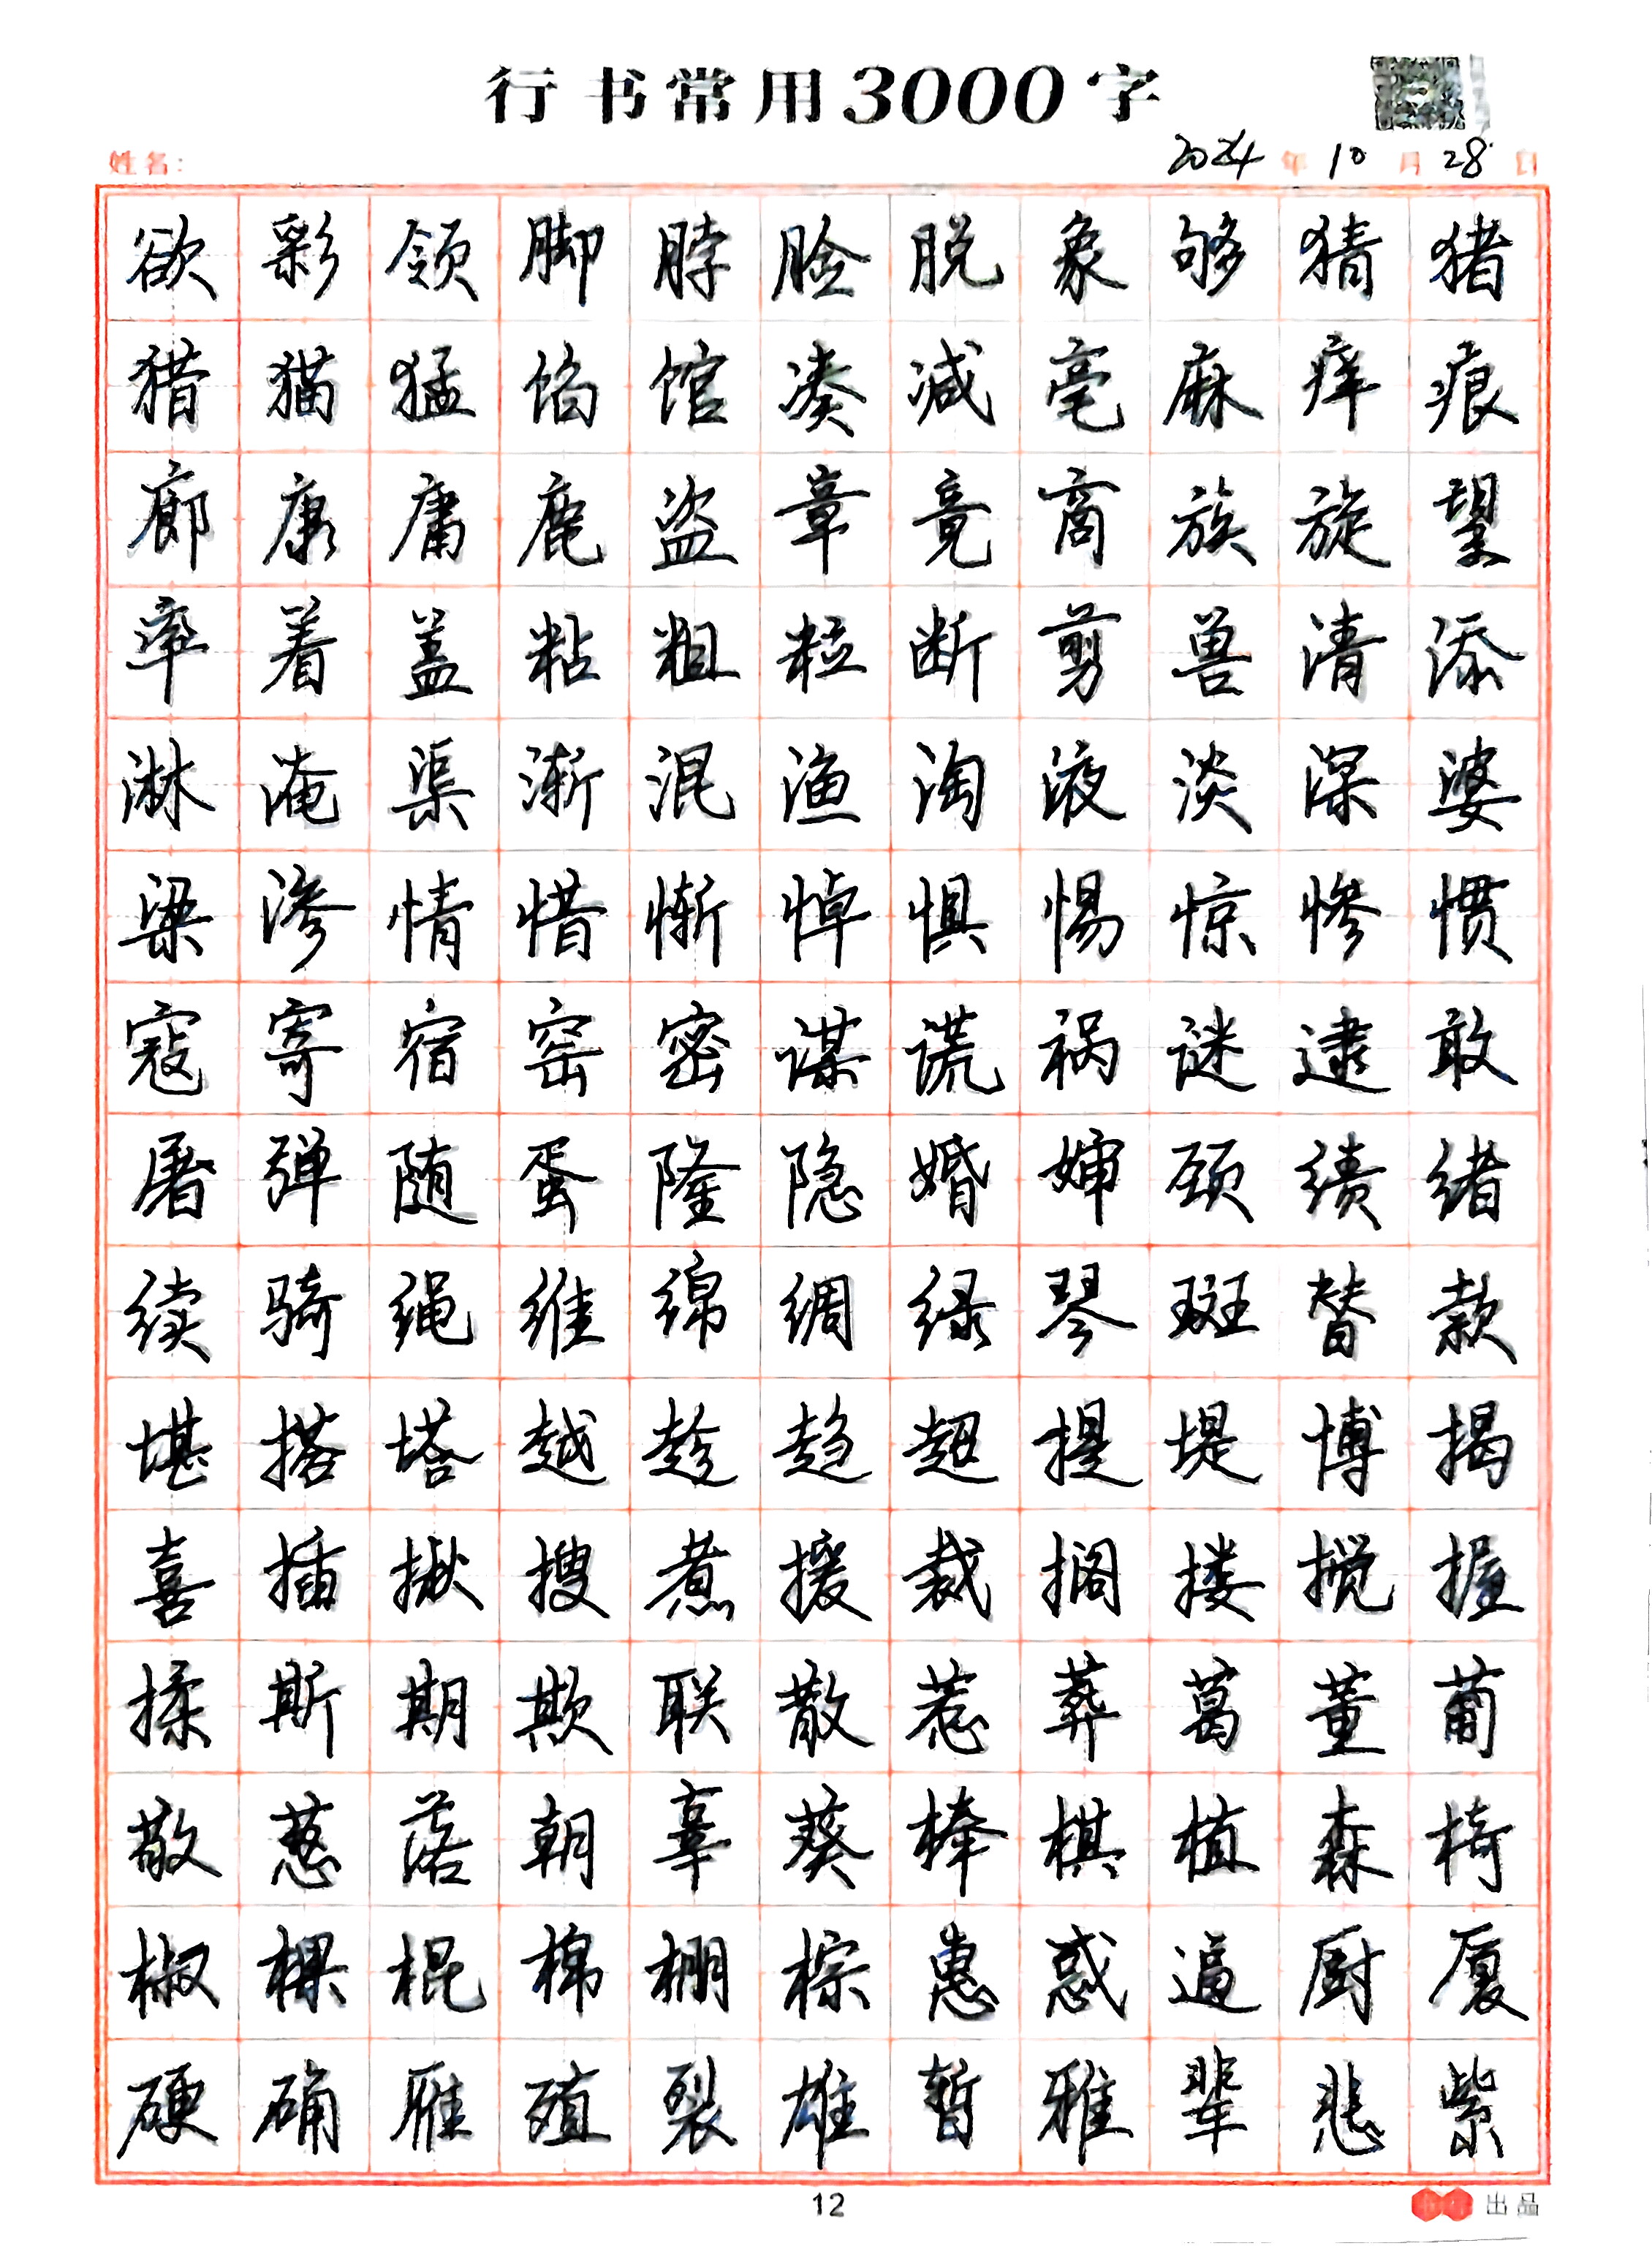 行书常用3000字
姓名： 2024年10月28日
欲彩领脚脖脸脱象够猜猪
猎猫猛馅馆凑减毫麻痒痕
廊康庸鹿盗章竟商族旋望
率着盖粘粗粒断剪兽清添
淋淹渠渐混渔淘液淡深婆
梁渗情惜惭悼惧惕惊惨惯
寇寄宿窑密谋谎祸谜逮敢
屠弹随蛋隆隐婚婶颈绩绪
续骑绳维绵绸绿琴斑替款
堪搭塔越趁趋超提堤博揭
喜插揪搜煮援裁搁搂搅握
揉斯期欺联散惹葬葛董葡
敬葱落朝辜葵棒棋植森椅
椒棵棍棉棚棕惠惑逼厨厦
硬确雁殖裂雄暂雅辈悲紫
12
出品